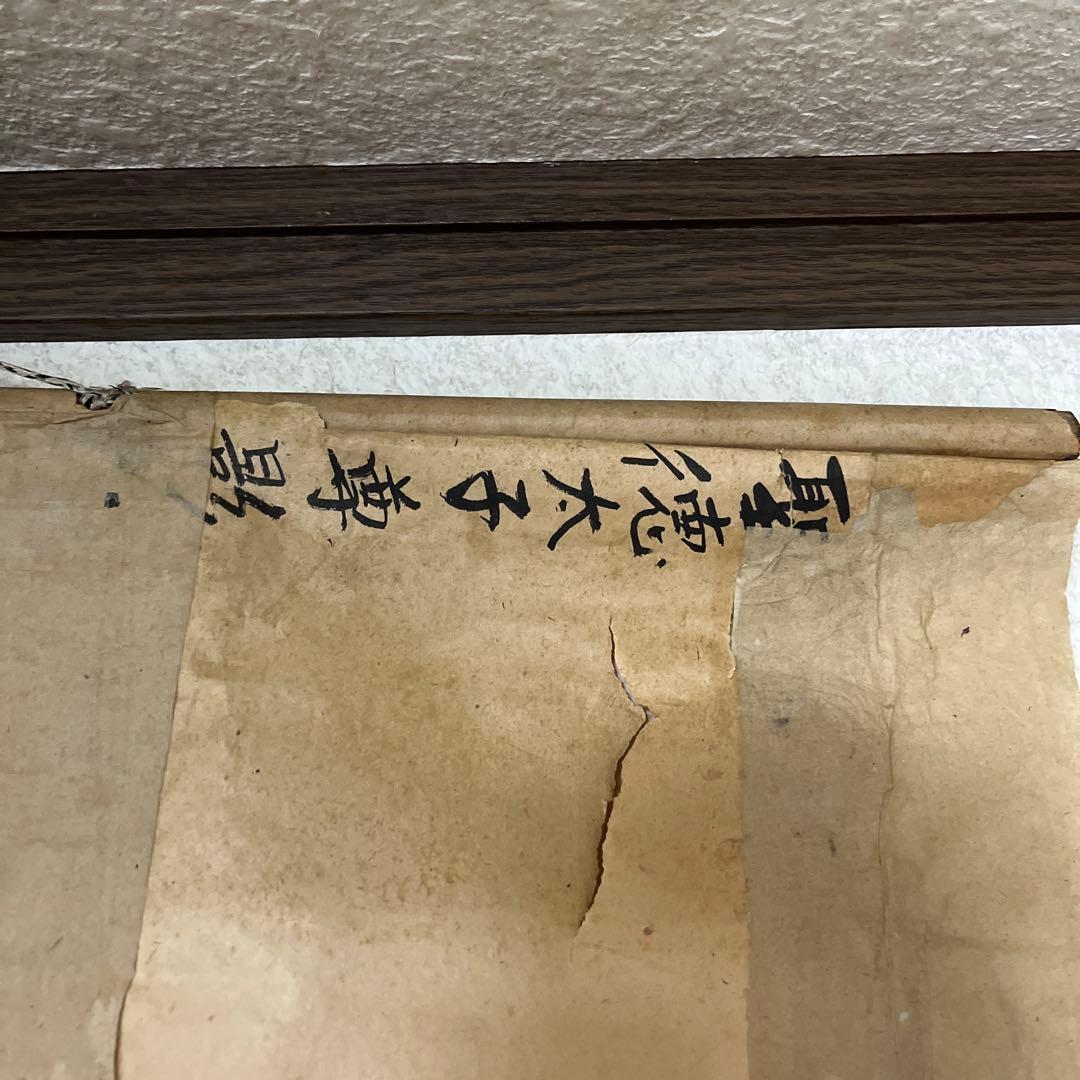 聖徳太子尊影